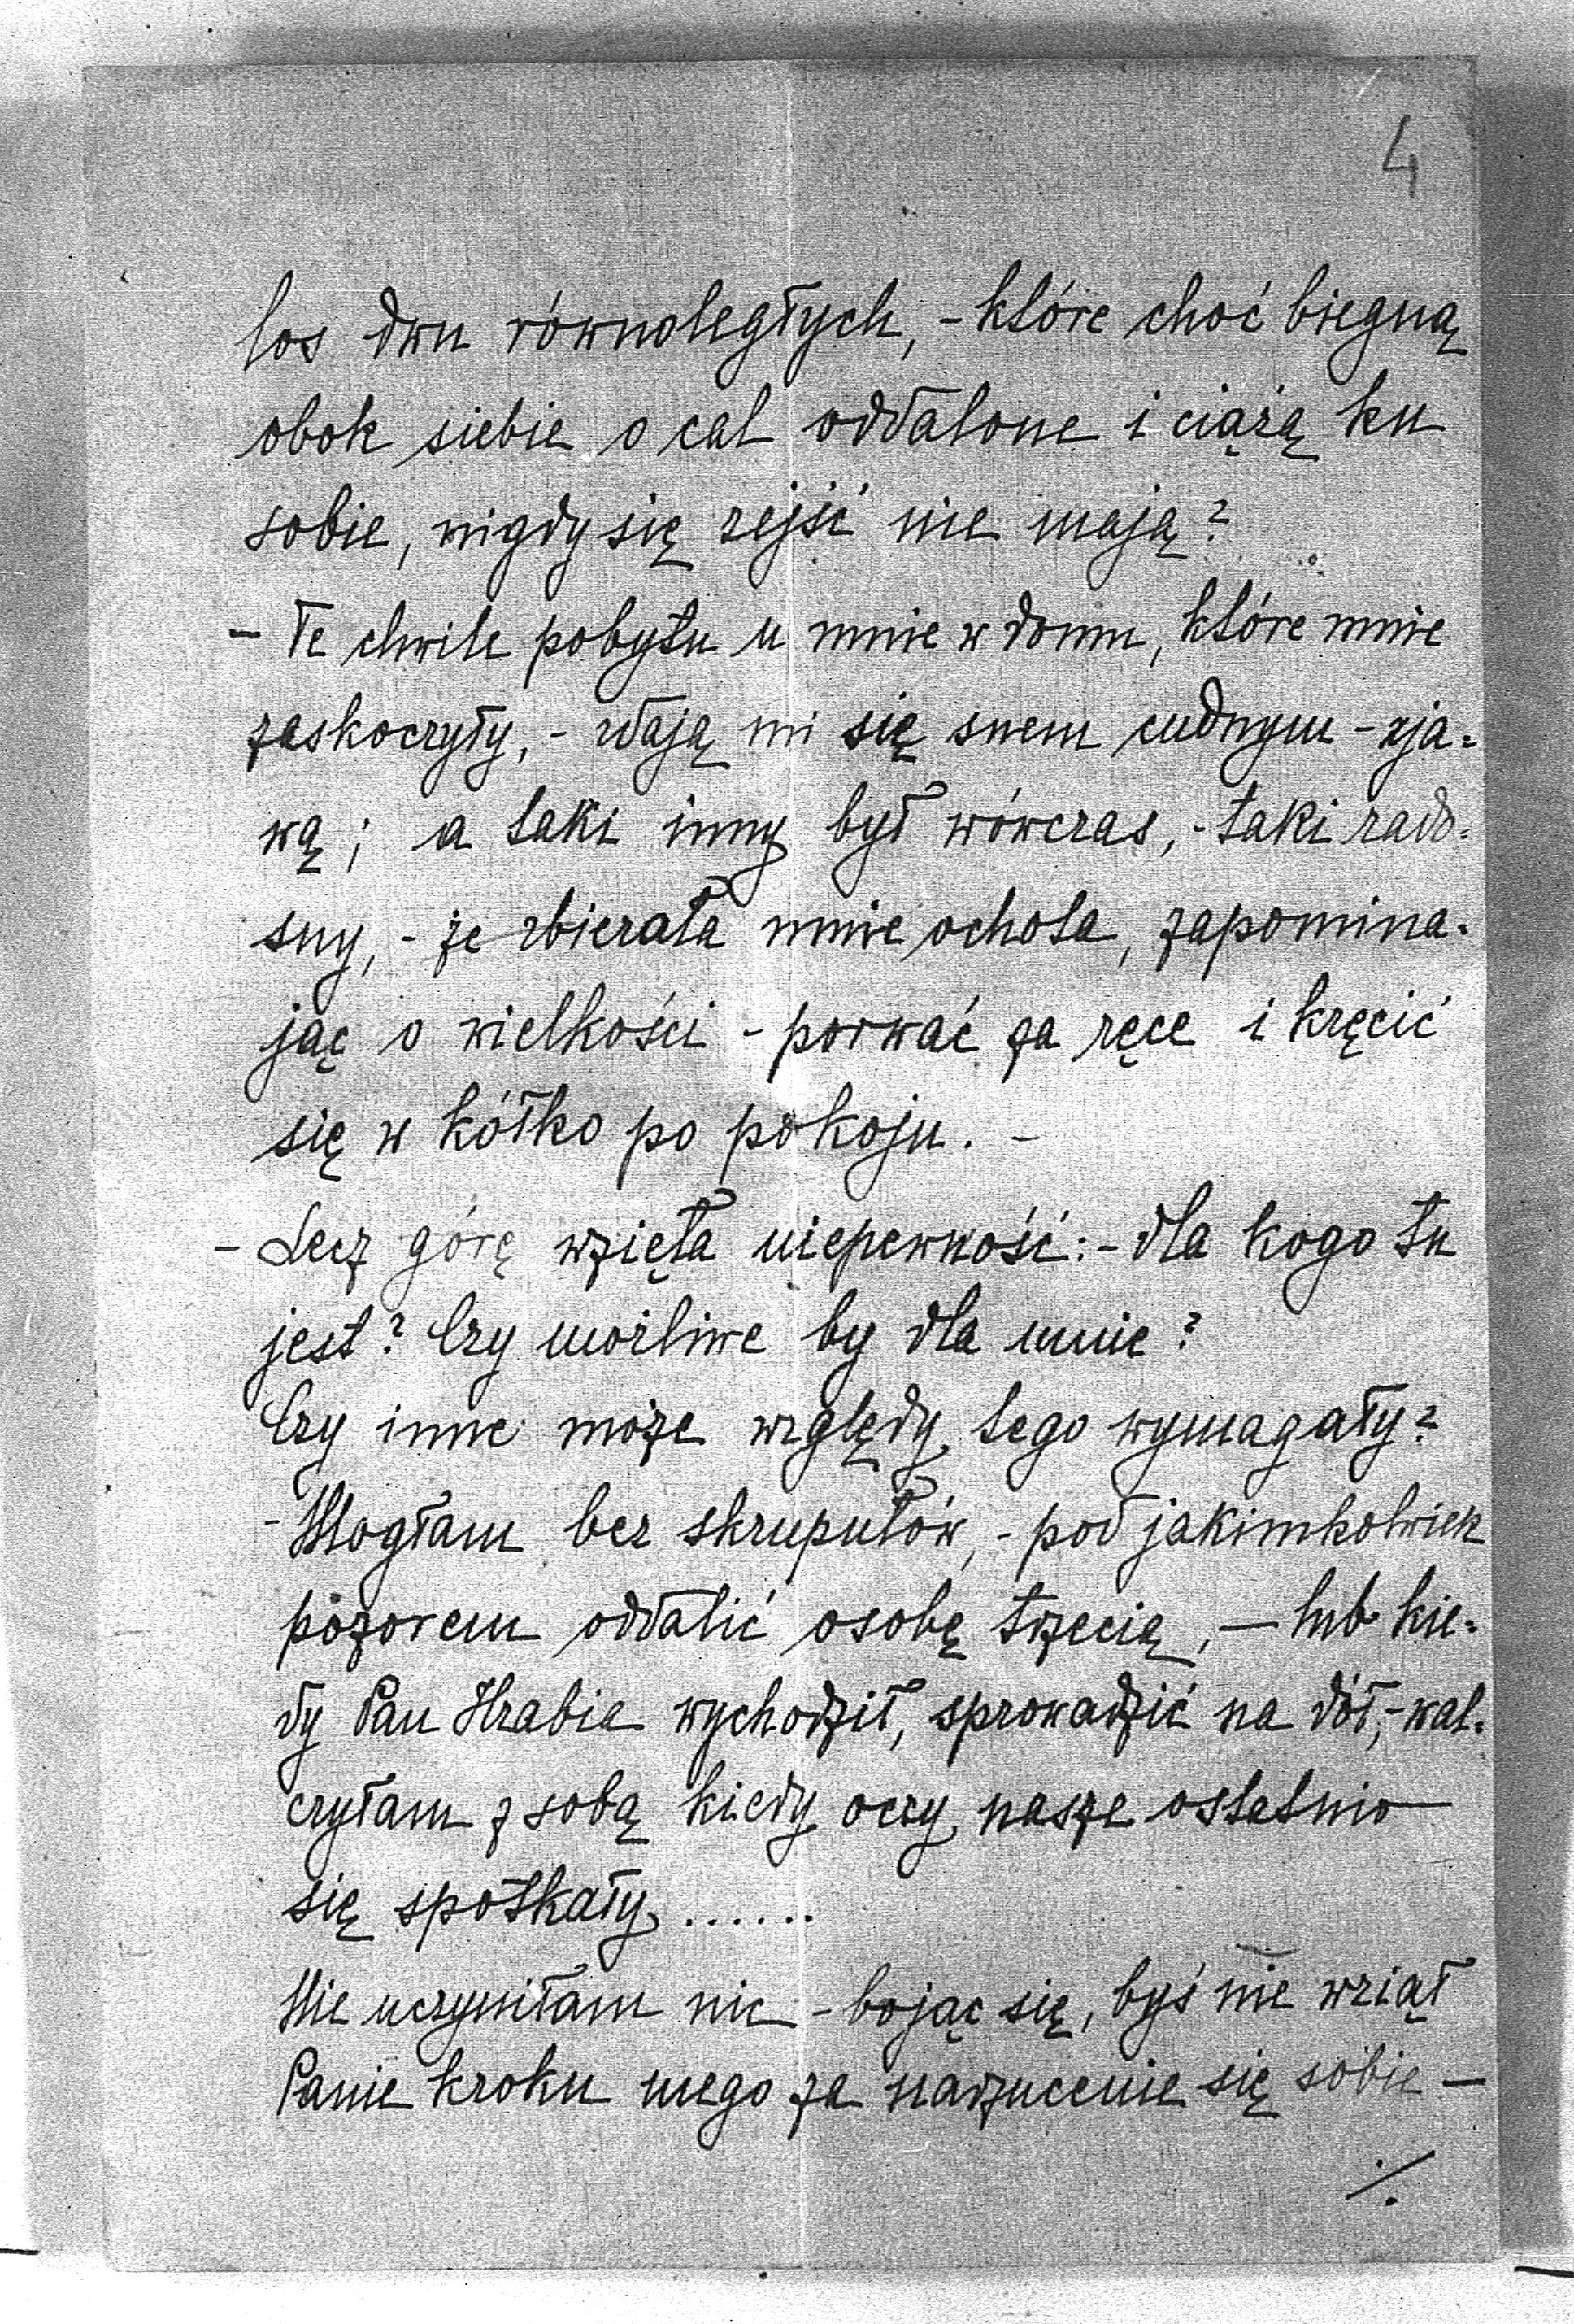 4
los dwu równoległych, - które choć biegną
obok siebie o cal oddalone i ciążą ku
sobie, nigdy się zejść nie mają?
- Te chwile pobytu u mnie w domu, które mnie
zaskoczyły, - zdają mi się snem cudnym - zja=
wą; a taki inny był wówczas, - taki rado=
sny, - że zbierała mnie ochota, zapomina=
jąc o wielkości - porwać za ręce i kręcić
się w kółko po pokoju. -
- Lecz górę wzięła niepewność: - dla kogo tu
jest? Czy możliwe by dla mnie?
Czy inne może względy tego wymagały?
- Mogłam bez skrupułów, - pod jakimkolwiek
pozorem oddalić osobę trzecią, - lub kie=
dy Pan Hrabia wychodził, sprowadzić na dół, - wal=
czyłam z sobą kiedy oczy nasze ostatnio
się spotkały ......
Nie uczyniłam nic - bojąc się, byś nie wziął
Panie kroku mego za narzucenie się sobie -
./.